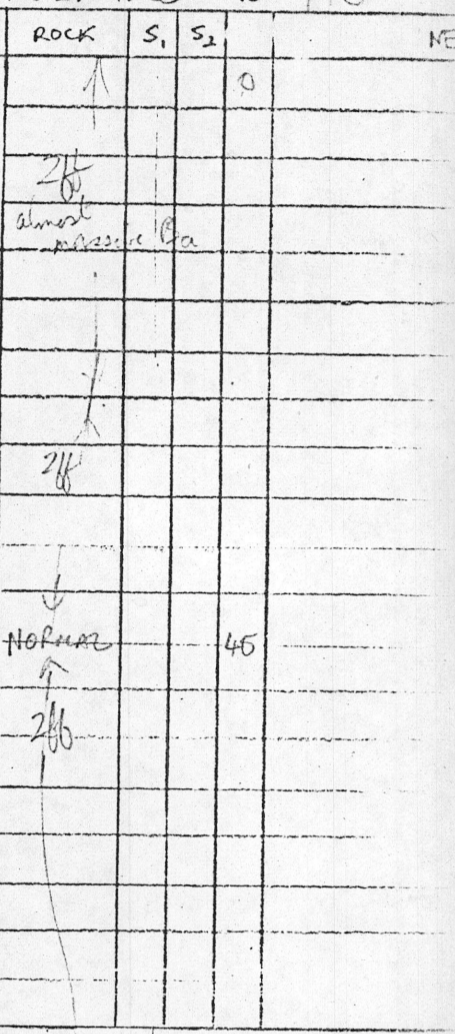 ROCK S₁ S₂ NE
0
2ff
almost
massive Ba
2ff
NORMAL 45
2ff